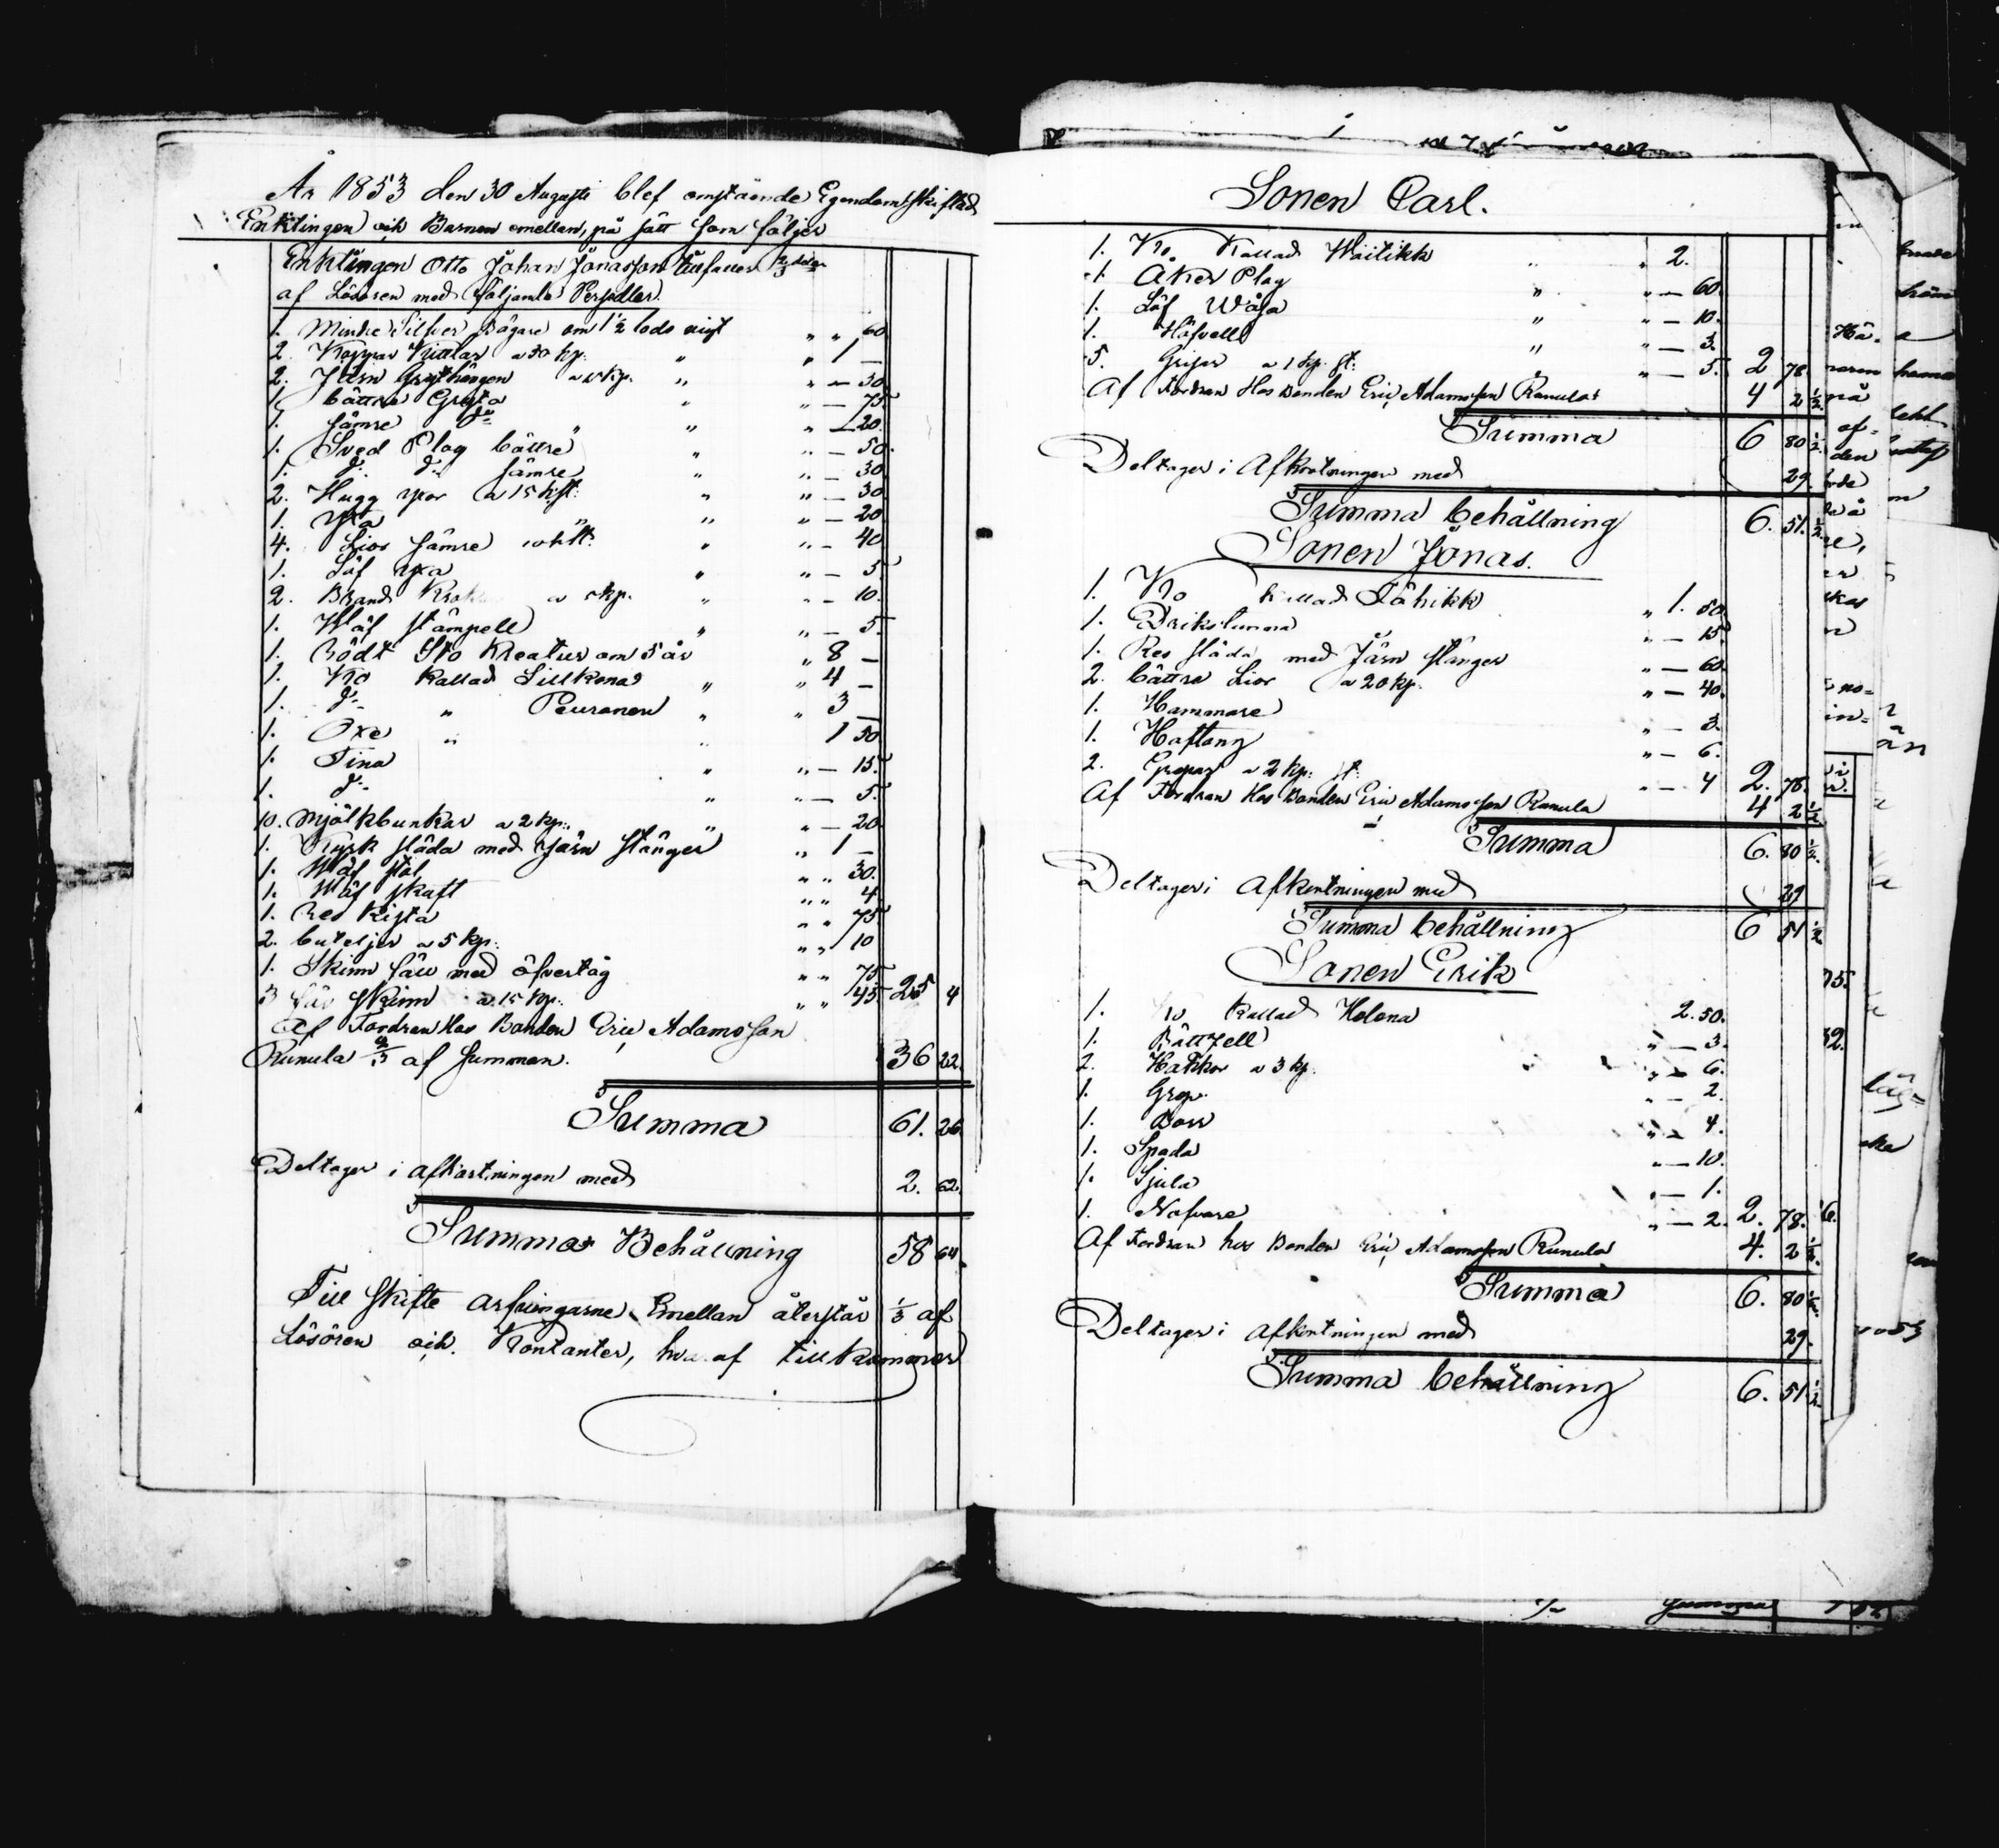 År 1853 den 30 Augusti blef omstående Egendom skiftad
Enklingen och Barnen emellan, på sätt som följer
Enklingen Otto Johan Jönasson tillfaller 2/3 delar
af Lösören med följande Persedlar.
1. Mindre Silfver Bägare om 1 1/2 lods vigt " " 60
2. Koppar Kittlar a 50 kp: " " 1 —
2. Järn Grythängen a 15 kp. " " — 30
1. bättre Gryta " " — 75
1. sämre do " " — 20.
1. Sved Plog bättre " " — 50.
1. do do sämre " " — 30
2. Hugg yxor a 15 k st: " " — 30
1. Yxa " " — 20
4. Lior sämre 10 k st: " " — 40
1. Löf yxa " " — 5
2. Brand Krok a 5 kp. " " — 10.
1. Wäf stämpell " " — 5.
1. Rödt Sto Kreatur om 5 år " 8 —
1. Ko kallad Sillkona " " 4 —
1. do " Peuronen " " 3 —
1. Oxe " " 1 50
1. Tina " " — 15.
1. do " " — 5.
10. Mjölkbunkar a 2 kp: " " — 20
1. Kyrk släda med Järn stänger " 1 —
1. Wäf stol " " 30.
1. Wäf skaft " " 4
1. Res Kista " " 75
2. buteljer a 5 kp: " " 10
1. Skinn fäll med öfvertåg " " 75
3 får skinn a 15 kp: " " 45 25 4
Af Fordran Hos Bonden Eric Adamsson
Runula 2/3 af summan. 36 22.
Summa 61. 26
Deltager i afkortningen med 2. 62.
Summa Behållning 58 64.
Till skifte arfvingarne Emellan återstår 1/3 af
Lösören och Kontanter, hvaraf tillkommer
Sonen Carl.
1. Ko. Kallad Waitikk " " 2.
1. Åker Plog " " — 60.
1. Löf Wåfa " " — 10.
1. Häfvell " " — 3.
5. Gripar a 1 kp. st: " — 5. 2 78.
Af Fordran Hos Bonden Eric Adamsson Runula 4 2 1/2.
Summa 6 80 1/2
Deltager i Afkortningen med 29.
Summa behållning 6. 51. 1/2
Sonen Jonas.
1. Ko kallad Tähikk " 1. 50
1. Drikstunna " — 15
1. Res släda med Järn stänger " — 60
2. bättre Lior a 20 kp. " — 40.
1. Hammare " — 3.
1. Hoftang " — 6.
2. Grepar a 2 kp: st: " — 4 2. 78.
Af Fordran Hos Bonden Eric Adamsson Runula 4 2 1/2
Summa 6. 80 1/2.
Deltager i Afkortningen med 29
Summa behållning 6 51 1/2
Sonen Erik
1. Ko kallad Helena 2. 50.
1. Båttfell " — 3.
2. Hakkor a 3 kp. " — 6.
1. Grep. " — 2.
1. Borr " — 4.
1. Spada " — 10.
1. Sjula " — 1.
1. Nafvare " — 2. 2. 78.
Af Fordran hos Bonden Eric Adamsson Runula 4. 2 1/2.
Summa 6. 80 1/2.
Deltager i Afkortningen med 29.
Summa behållning 6. 51 1/2
Summa